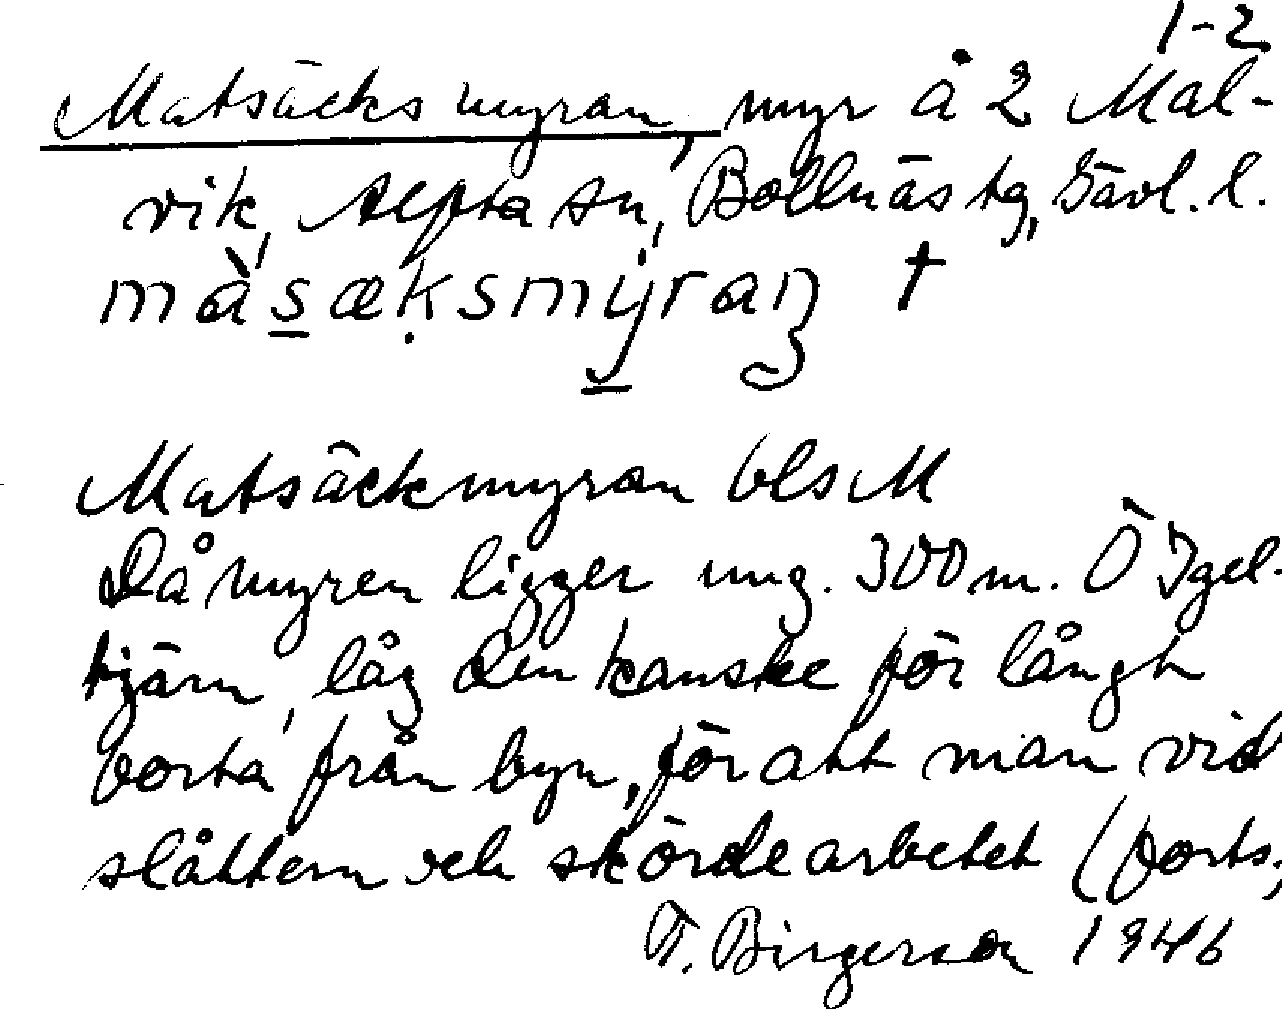 1-2
Matsäcksmyran, myr å 2 Mal-
vik, Alfta sn, Bollnäs tg, Gävl. l.
màsæksmyran †
Matsäckmyran bls M
Då myren ligger ung. 300 m. Ö Igel-
tjärn, låg den kanske för långt
borta från byn, för att man vid
slåttern och skördearbetet (forts,
F. Birgerson 1946